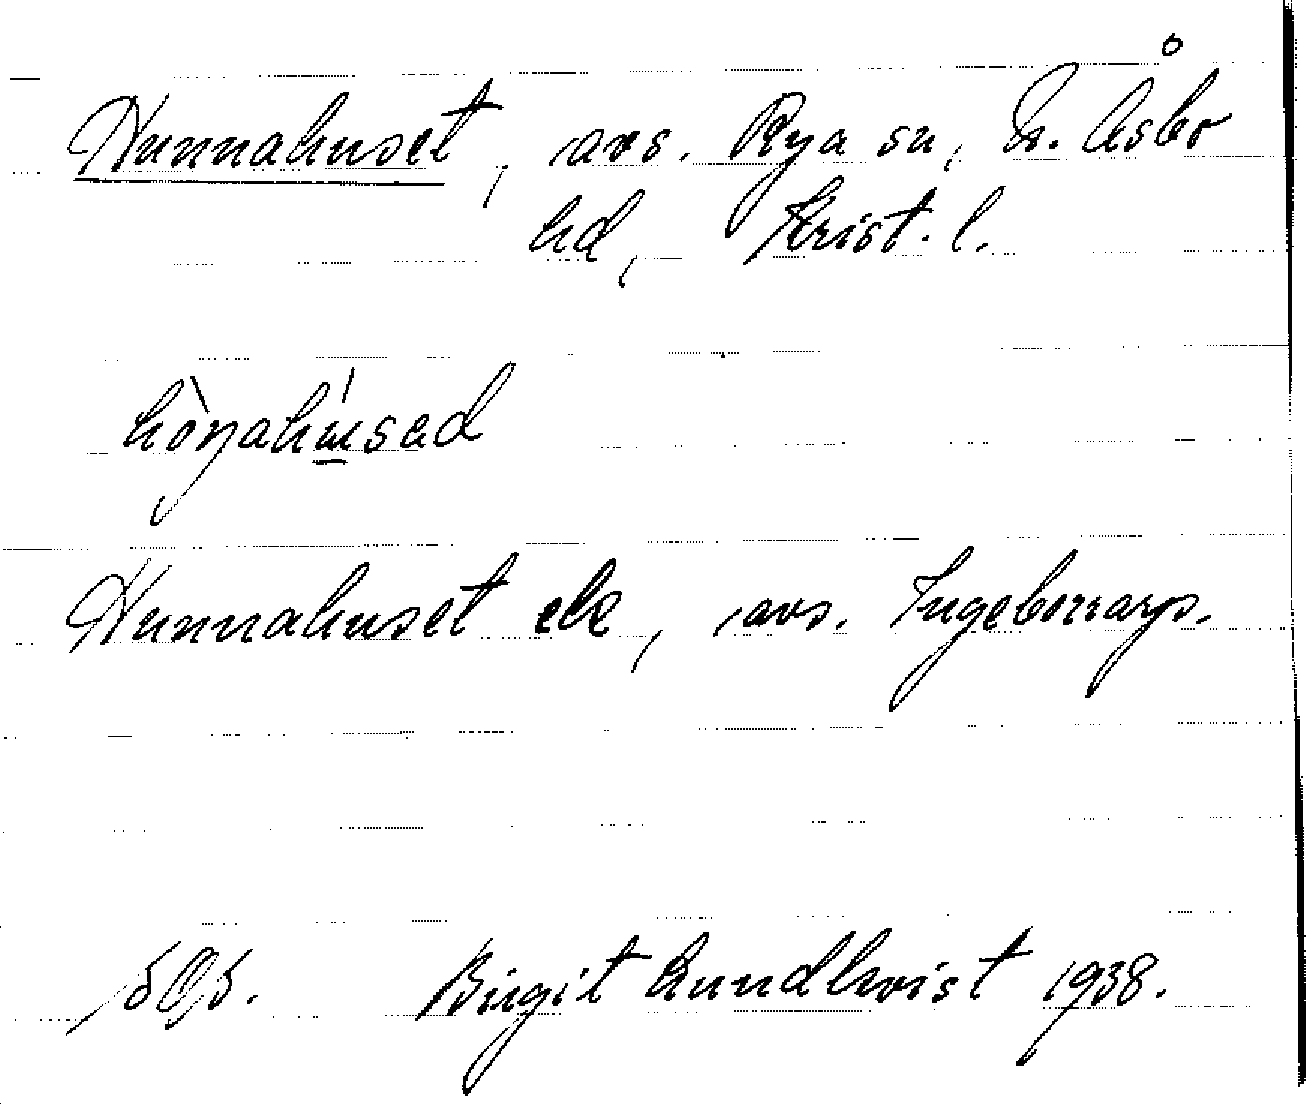 Hunnahuset, avs. Rya sn, N. Åsbo
hd, Krist. l.
Hunnahuset ek, avs. Ingeborrarp.
Birgit Lundkvist 1938.